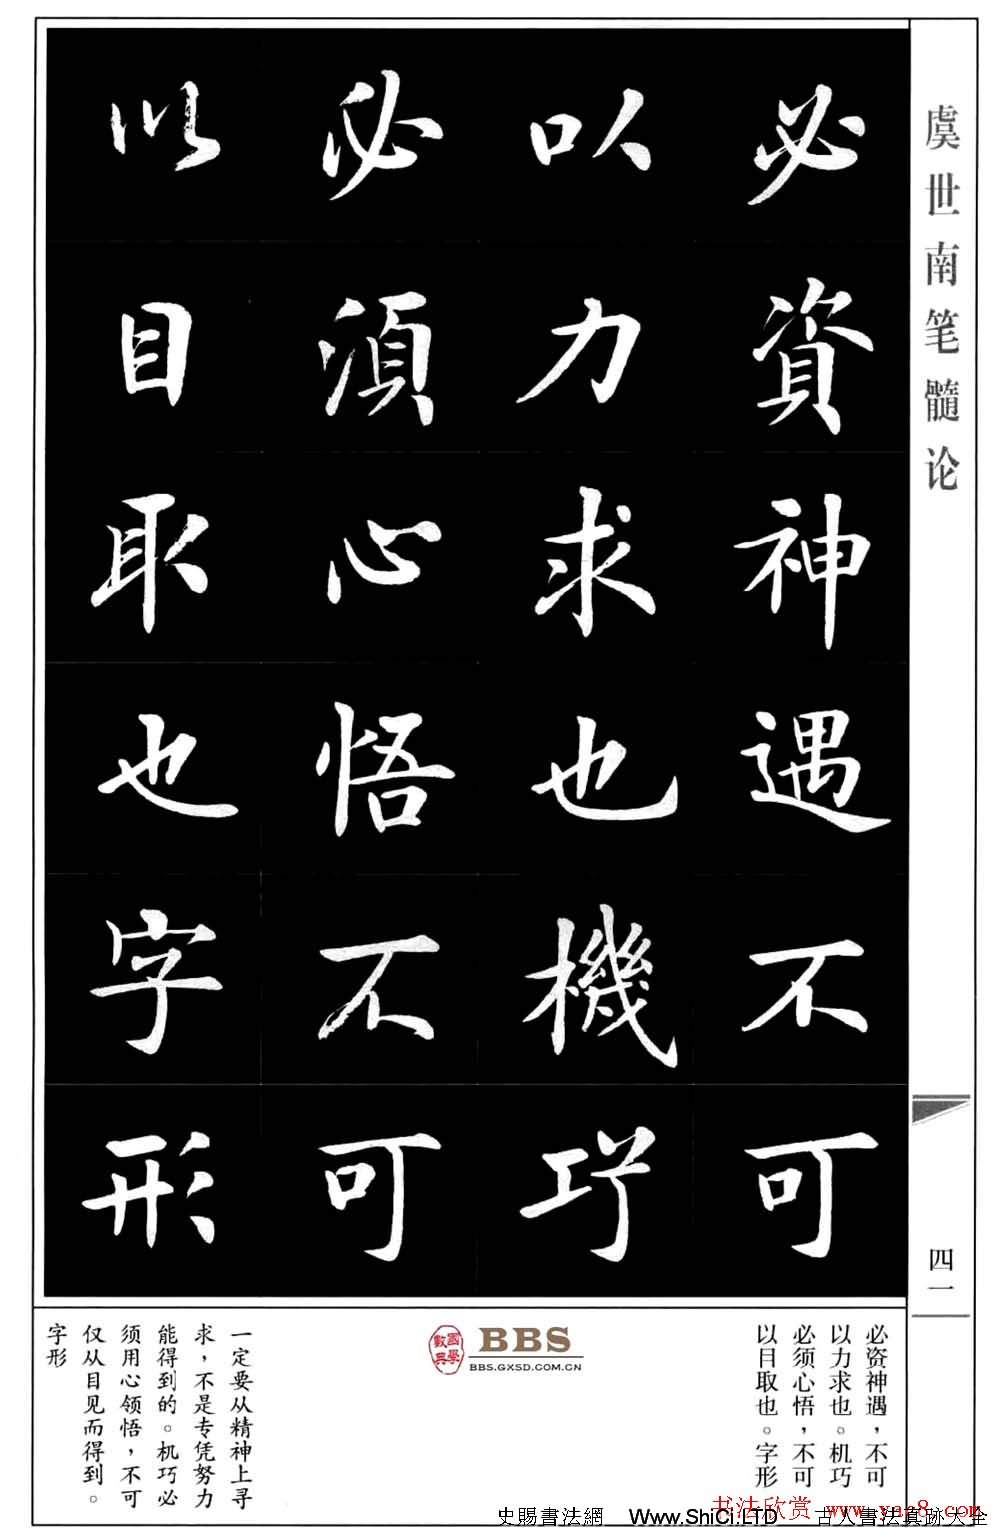 虞世南笔髓论
必資神遇不可
以力求也機巧
必須心悟不可
以目取也字形
四一
必资神遇，不可
以力求也。机巧
必须心悟，不可
以目取也。字形
國學數典
BBS
BBS.GXSD.COM.CN
一定要从精神上寻
求，不是专凭努力
能得到的。机巧必
须用心领悟，不可
仅从目见而得到。
字形
书法欣赏 www.yac8.com
史賜書法網 www.ShiCi.LTD 古人書法真跡大全